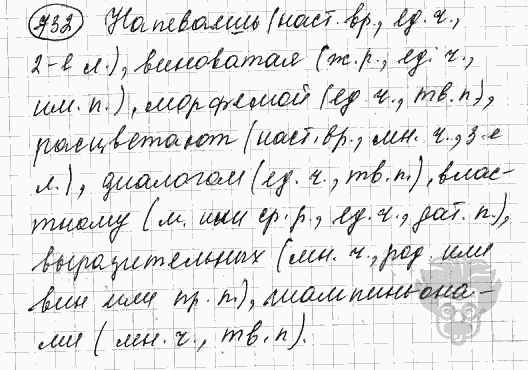 732 Напеваешь (наст. вр., ед. ч.,
2-е л.), виноватая (ж. р., ед. ч.,
им. п.), морфемой (ед. ч., тв. п.),
расцветают (наст. вр., мн. ч., 3-е
л.), диалогам (ед. ч., тв. п.), влас-
тному (м. или ср. р., ед. ч., дат. п.),
выразительных (мн. ч., род. или
вин или пр. п.), шампиньона-
ми (мн. ч., тв. п).